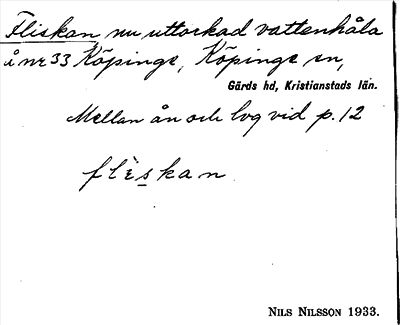 Fliskan nu uttorkad vattenhåla
å nr 33 Köpinge, Köpinge sn,
Gärds hd, Kristianstads län.
Mellan ån och lvg vid p. 12
flìskan
NILS NILSSON 1933.